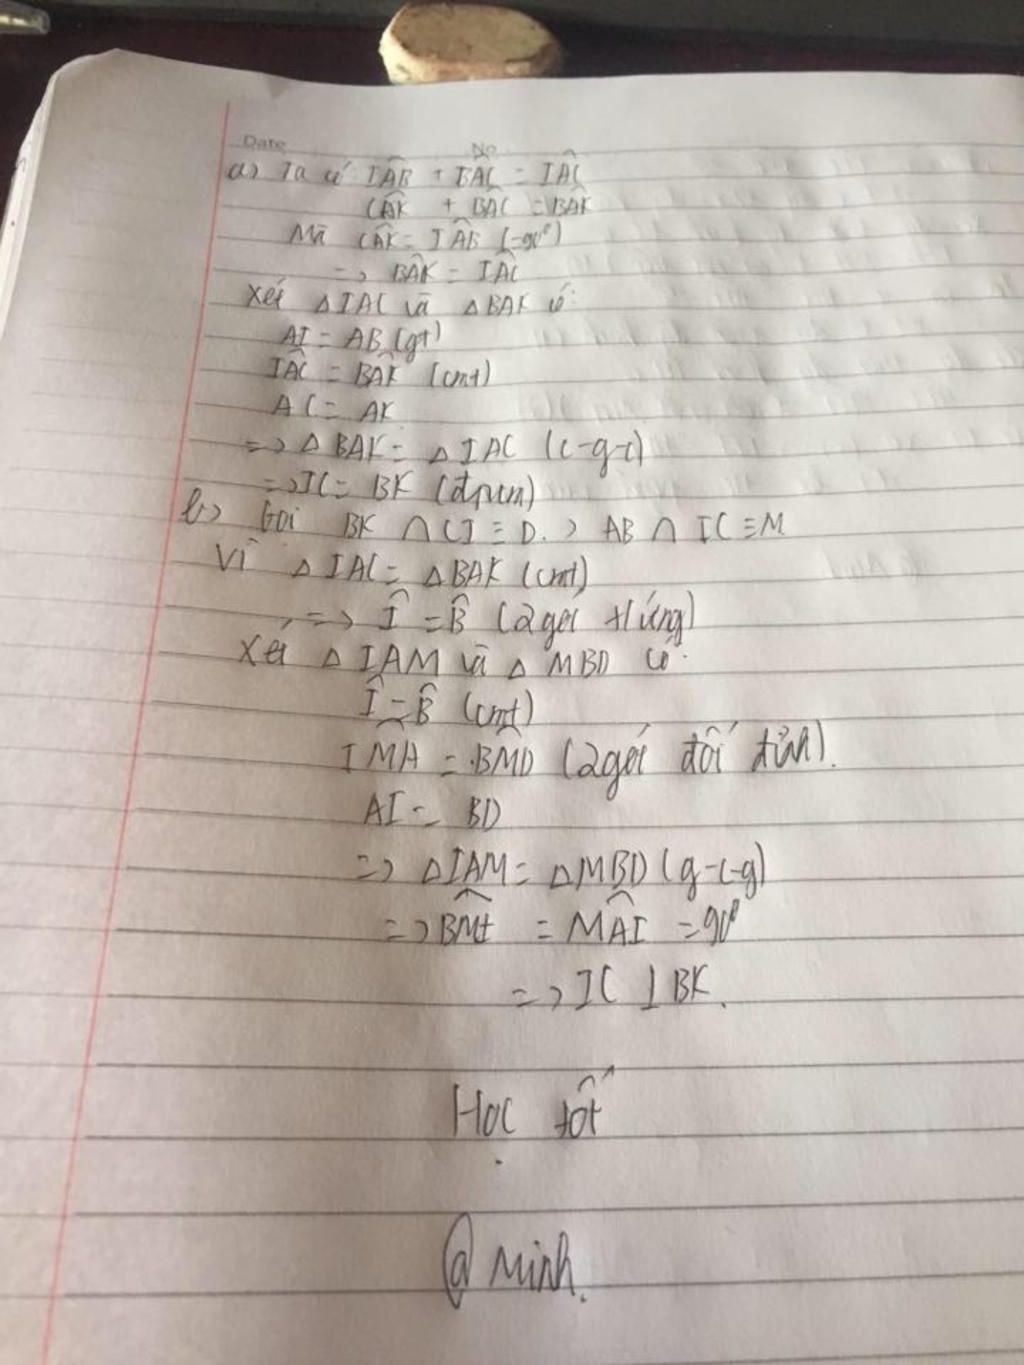 Date No
a) Ta có IÂB + BÂC = IÂC
CÂK + BÂC = BÂK
Mà CÂK = IÂB (=90°)
=> BÂK = IÂC
Xét △IAC và △BAK có:
AI = AB (gt)
IÂC = BÂK (cmt)
AC = AK
=> △BAK = △IAC (c-g-c)
=> IC = BK (đpcm)
b) Gọi BK ∩ CI ≡ D. ; AB ∩ IC ≡ M
Vì △IAC = △BAK (cmt)
=> Î = B̂ (2 góc t/ứng)
Xét △IAM và △MBD có:
Î = B̂ (cmt)
IM̂A = BM̂D (2 góc đối đỉnh).
AI = BD
=> △IAM = △MBD (g-c-g)
=> = MÂI = 90°
=> IC ⊥ BK.
Học tốt
@ Minh.